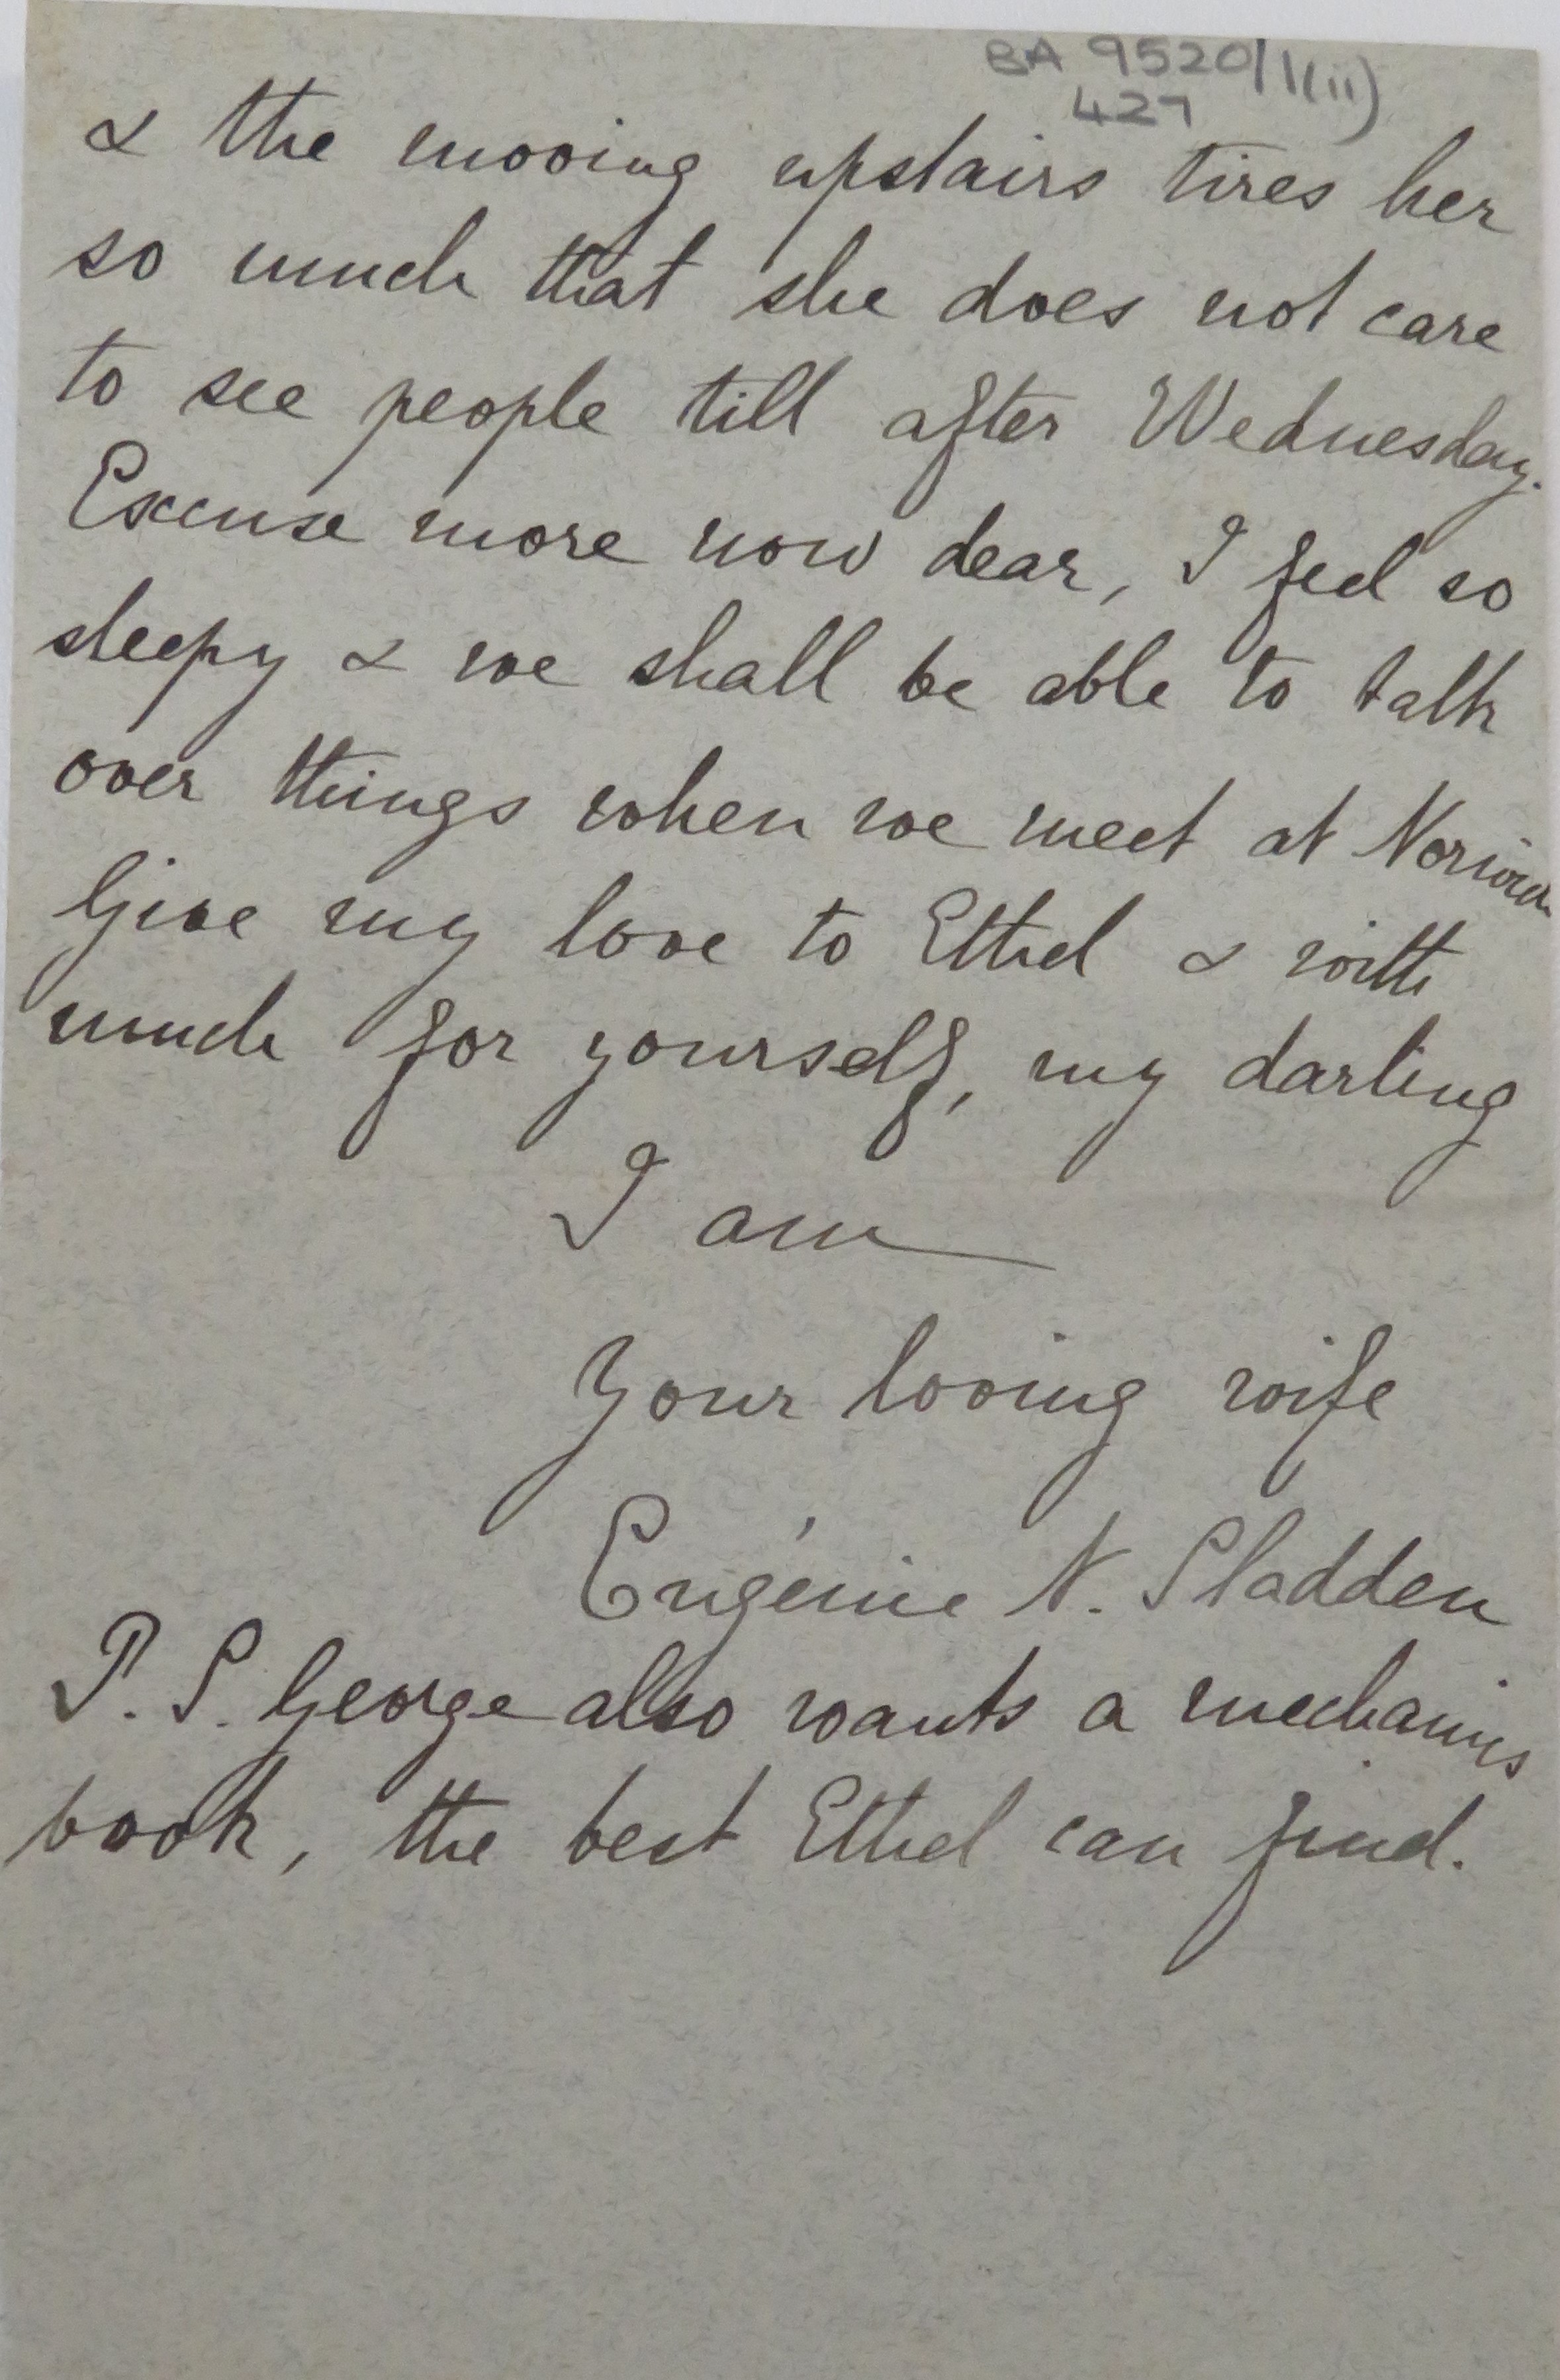 BA 9520/1(ii)
427
& the moving upstairs tires her
so much that she does not care
to see people till after Wednesday.
Excuse more now dear, I feel so
sleepy & we shall be able to talk
over things when we meet at Norwood
Give my love to Ethel & with
much for yourself, my darling
I am
Your loving wife
Eugénie N. Sladden
P.S. George also wants a mechanics
book, the best Ethel can find.